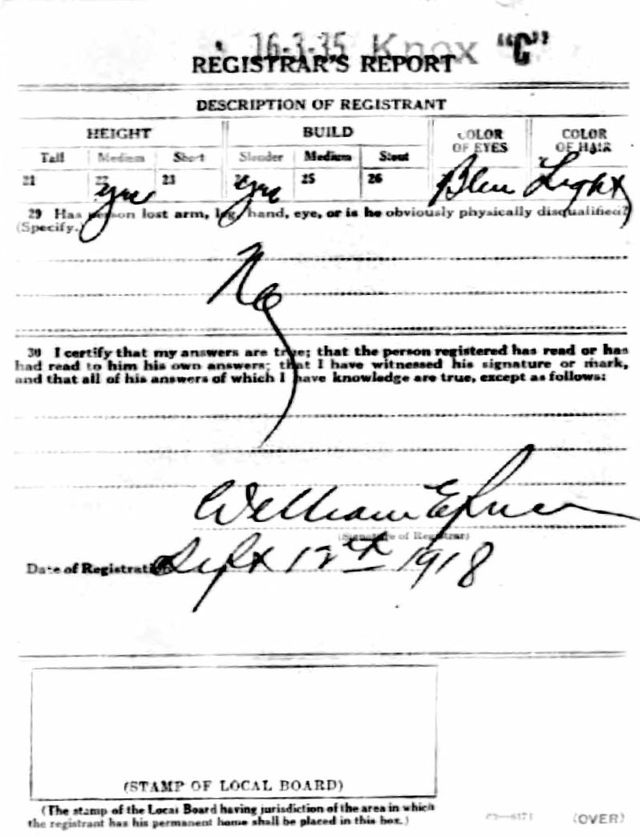 16-3-35 Knox "C"
REGISTRAR'S REPORT
DESCRIPTION OF REGISTRANT
HEIGHT BUILD COLOR OF EYES COLOR OF HAIR
Tall Medium Short Slender Medium Stout
21 22 yes 23 24 yes 25 26 Blue Light
29 Has person lost arm, leg, hand, eye, or is he obviously physically disqualified?
(Specify.)
No
30 I certify that my answers are true; that the person registered has read or has
had read to him his own answers; that I have witnessed his signature or mark,
and that all of his answers of which I have knowledge are true, except as follows:
William E
(Signature of Registrar)
Date of Registration Sept 12th 1918
(STAMP OF LOCAL BOARD)
(The stamp of the Local Board having jurisdiction of the area in which
the registrant has his permanent home shall be placed in this box.)
(OVER)